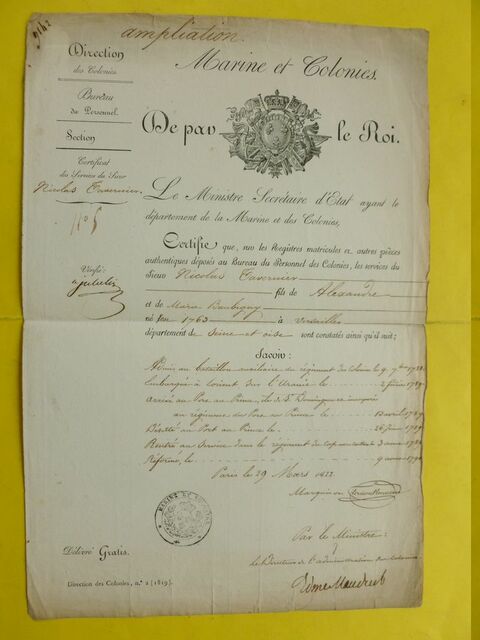 ampliation.
Direction
des Colonies.
Bureau
du Personnel.
Section
Certificat
des Services du Sieur
Nicolas Tavernier.
n.º 5
Vérifié:
Marine et Colonies.
De par le Roi.
Le Ministre Secrétaire d'État ayant le
département de la Marine et des Colonies,
Certifie que, sur les Registres matricules et autres pièces
authentiques déposés au Bureau du Personnel des Colonies, les services du
Sieur Nicolas Tavernier
fils de Alexandre
et de Marie Baubigny
né en 1763 à Versailles
département de Seine et oise sont constatés ainsi qu'il suit;
Savoir:
au bataillon auxiliaire du régiment des Colonies le 9. 7bre
Embarqué à Lorient sur l'Uranie le 2 février 1789
Arrivé au Port au Prince, île de St Domingue et incorporé
au régiment du Port au Prince le avril 1789
Déserté au Port au Prince le 26
Rentré au Service dans le régiment du Cap 3
Réformé, le 9
Paris le 29 Mars 1822
Marquis de Clermont Tonnerre
MARINE ET COLONIES
Par le Ministre:
Le Directeur de l'administration des Colonies
Délivré Gratis.
Direction des Colonies, n.º 2 (1819).